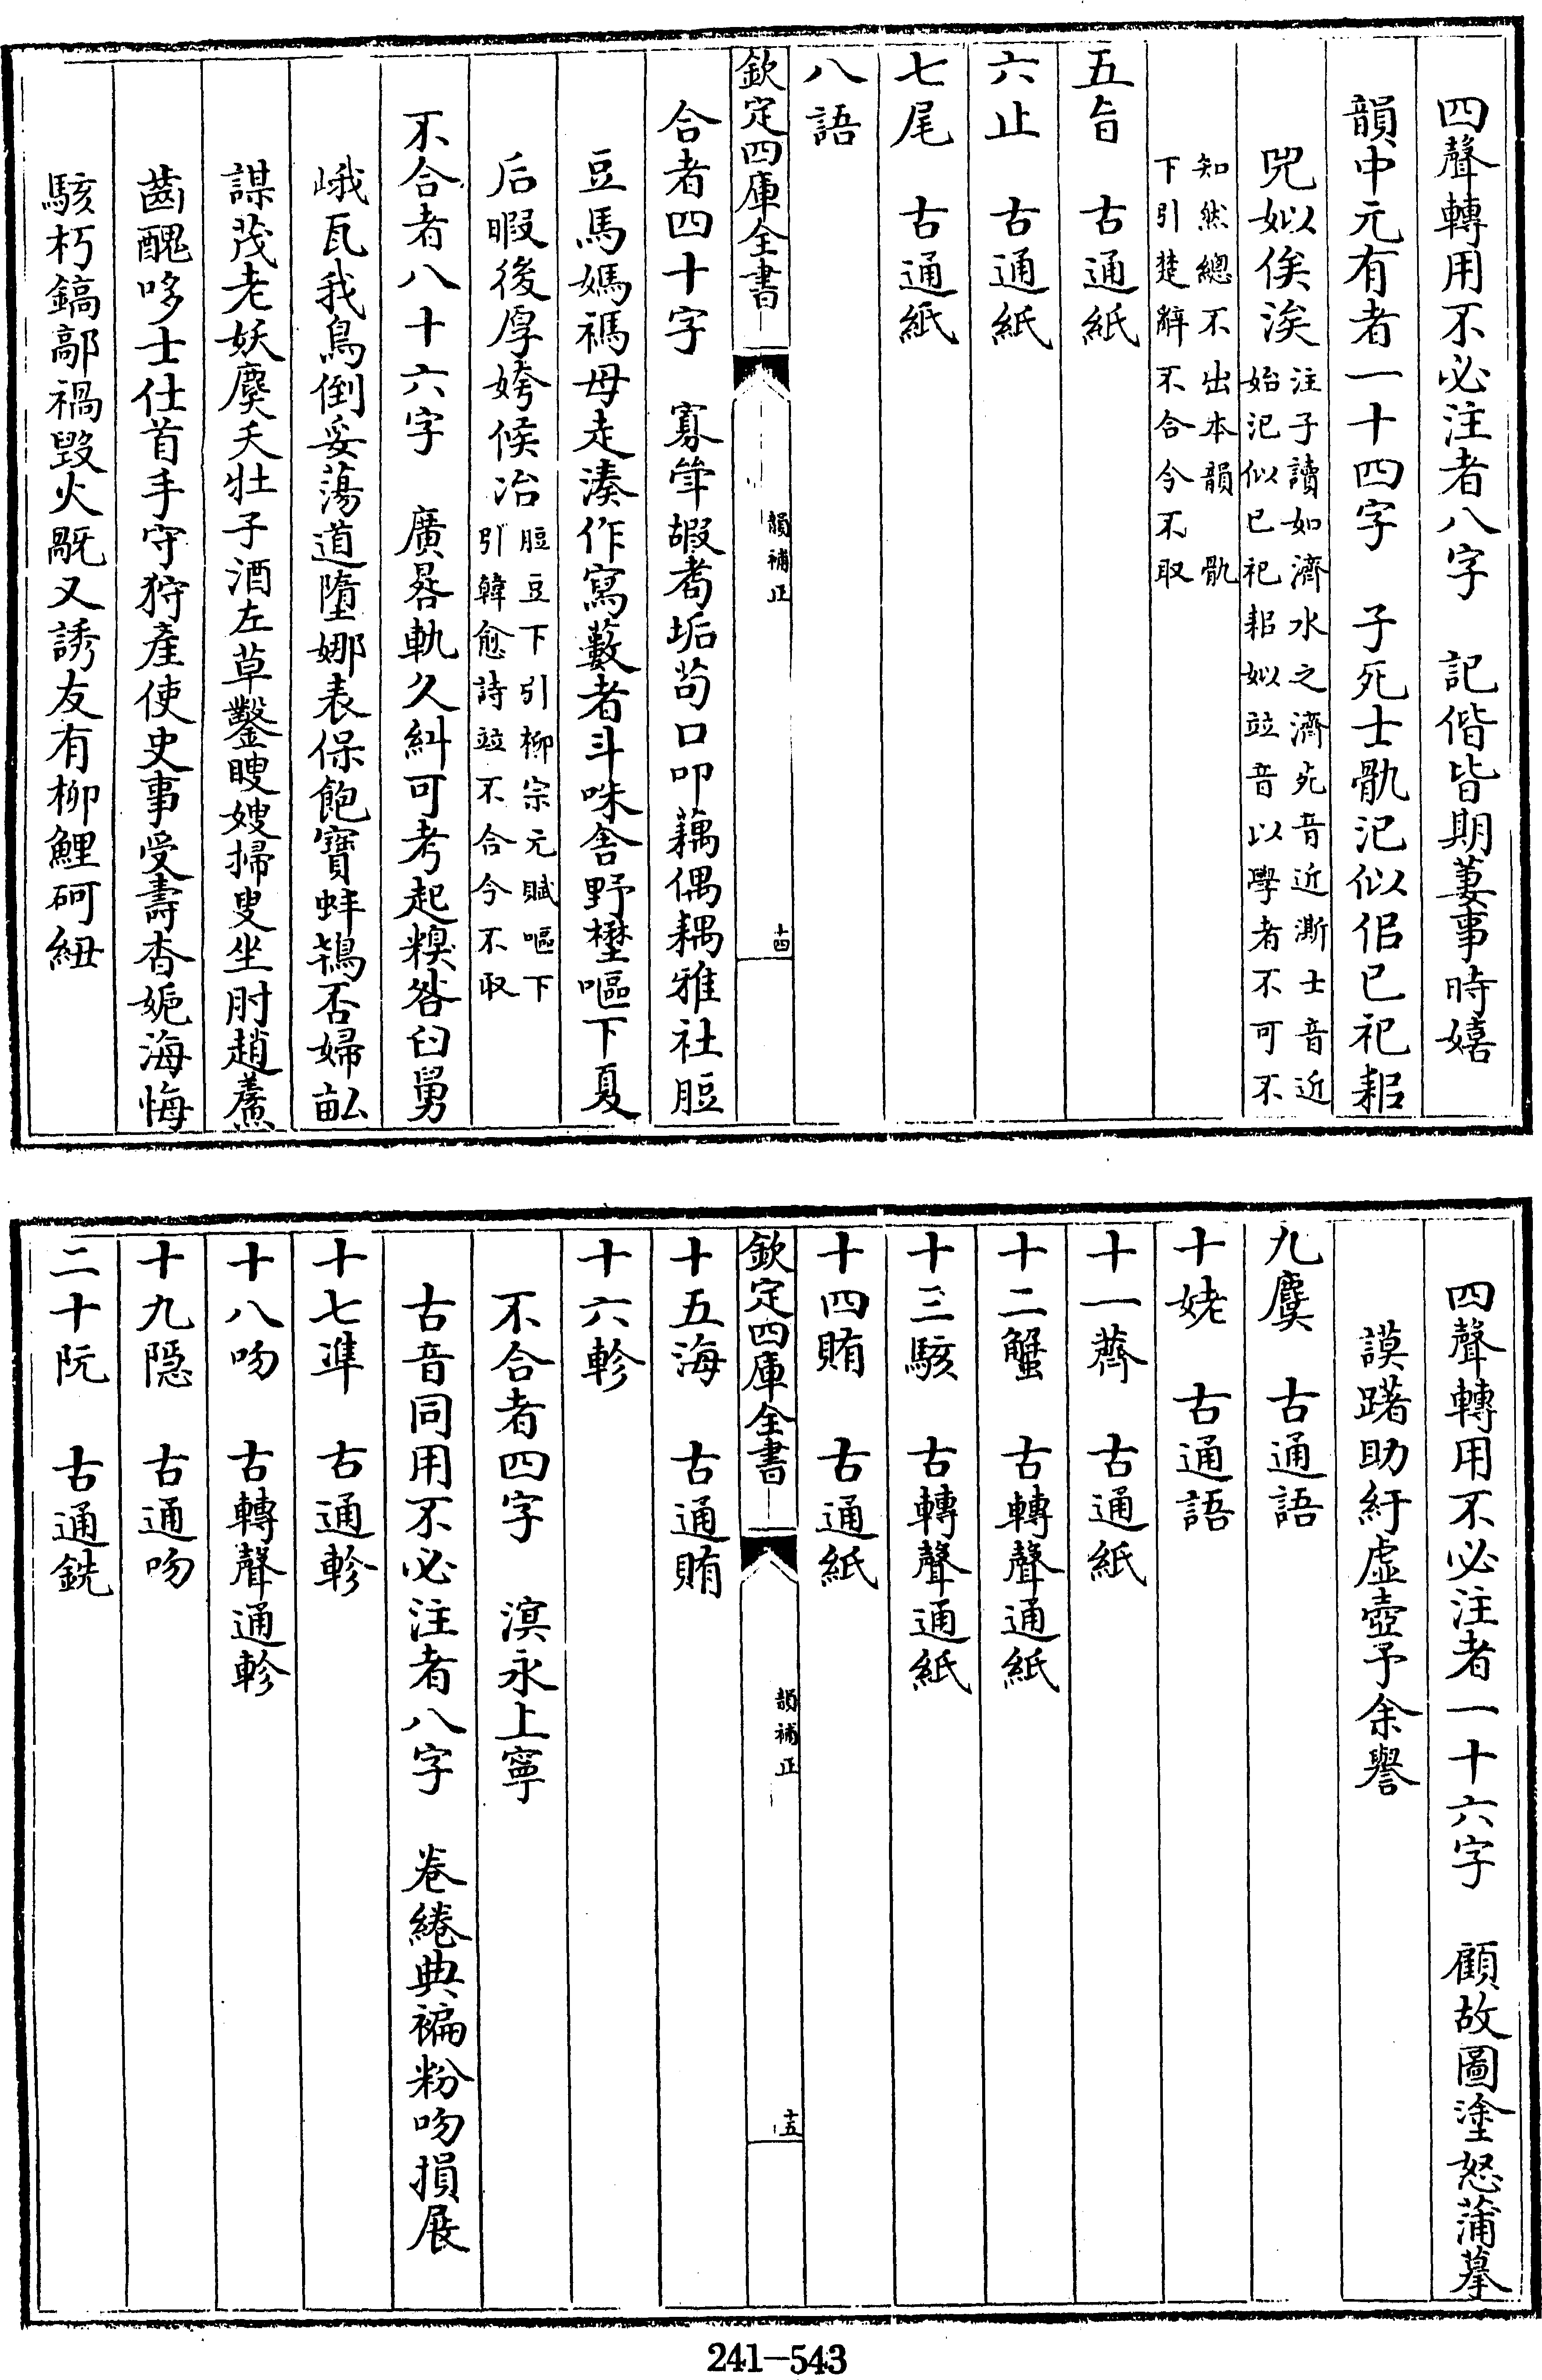 四聲轉用不必注者八字　記偕皆期萋事時嬉
韻中元有者一十四字　子死士骫汜似佀已祀耜
兕姒俟涘注子讀如濟水之濟死音近澌士音近
始汜似已祀耜姒竝音以學者不可不
知然總不出本韻　骫
下引楚辭不合今不取
五旨　古通紙
六止　古通紙
七尾　古通紙
八語
欽定四庫全書
韻補正
十四
合者四十字　寡斝嘏耇垢茍口叩藕偶耦雅社脰
豆馬媽禡母走湊作寫藪者斗咮舍野壄嘔下夏
后暇後厚姱候冶脰豆下引柳宗元賦嘔下
引韓愈詩竝不合今不取
不合者八十六字　廣晷軌久糾可考起糗咎臼舅
峨瓦我鳥倒妥蕩道墮娜表保飽寶蚌鴇否婦畝
謀茂老妖麌夭牡子酒左草鑿瞍嫂掃叟坐肘趙藨
齒醜哆士仕首手守狩產使史事受壽杏妮海悔
駭朽鎬鄗禍毀火䮜又誘友有柳鯉砢紐
四聲轉用不必注者一十六字　顧故圖塗怒蒲摹
謨躇助紆虛壺予余譽
九麌　古通語
十姥　古通語
十一薺　古通紙
十二蟹　古轉聲通紙
十三駭　古轉聲通紙
十四賄　古通紙
欽定四庫全書
韻補正
十五
十五海　古通賄
十六軫
不合者四字　溟永上寧
古音同用不必注者八字　卷綣典褊粉吻損展
十七準　古通軫
十八吻　古轉聲通軫
十九隱　古通吻
二十阮　古通銑
241—543